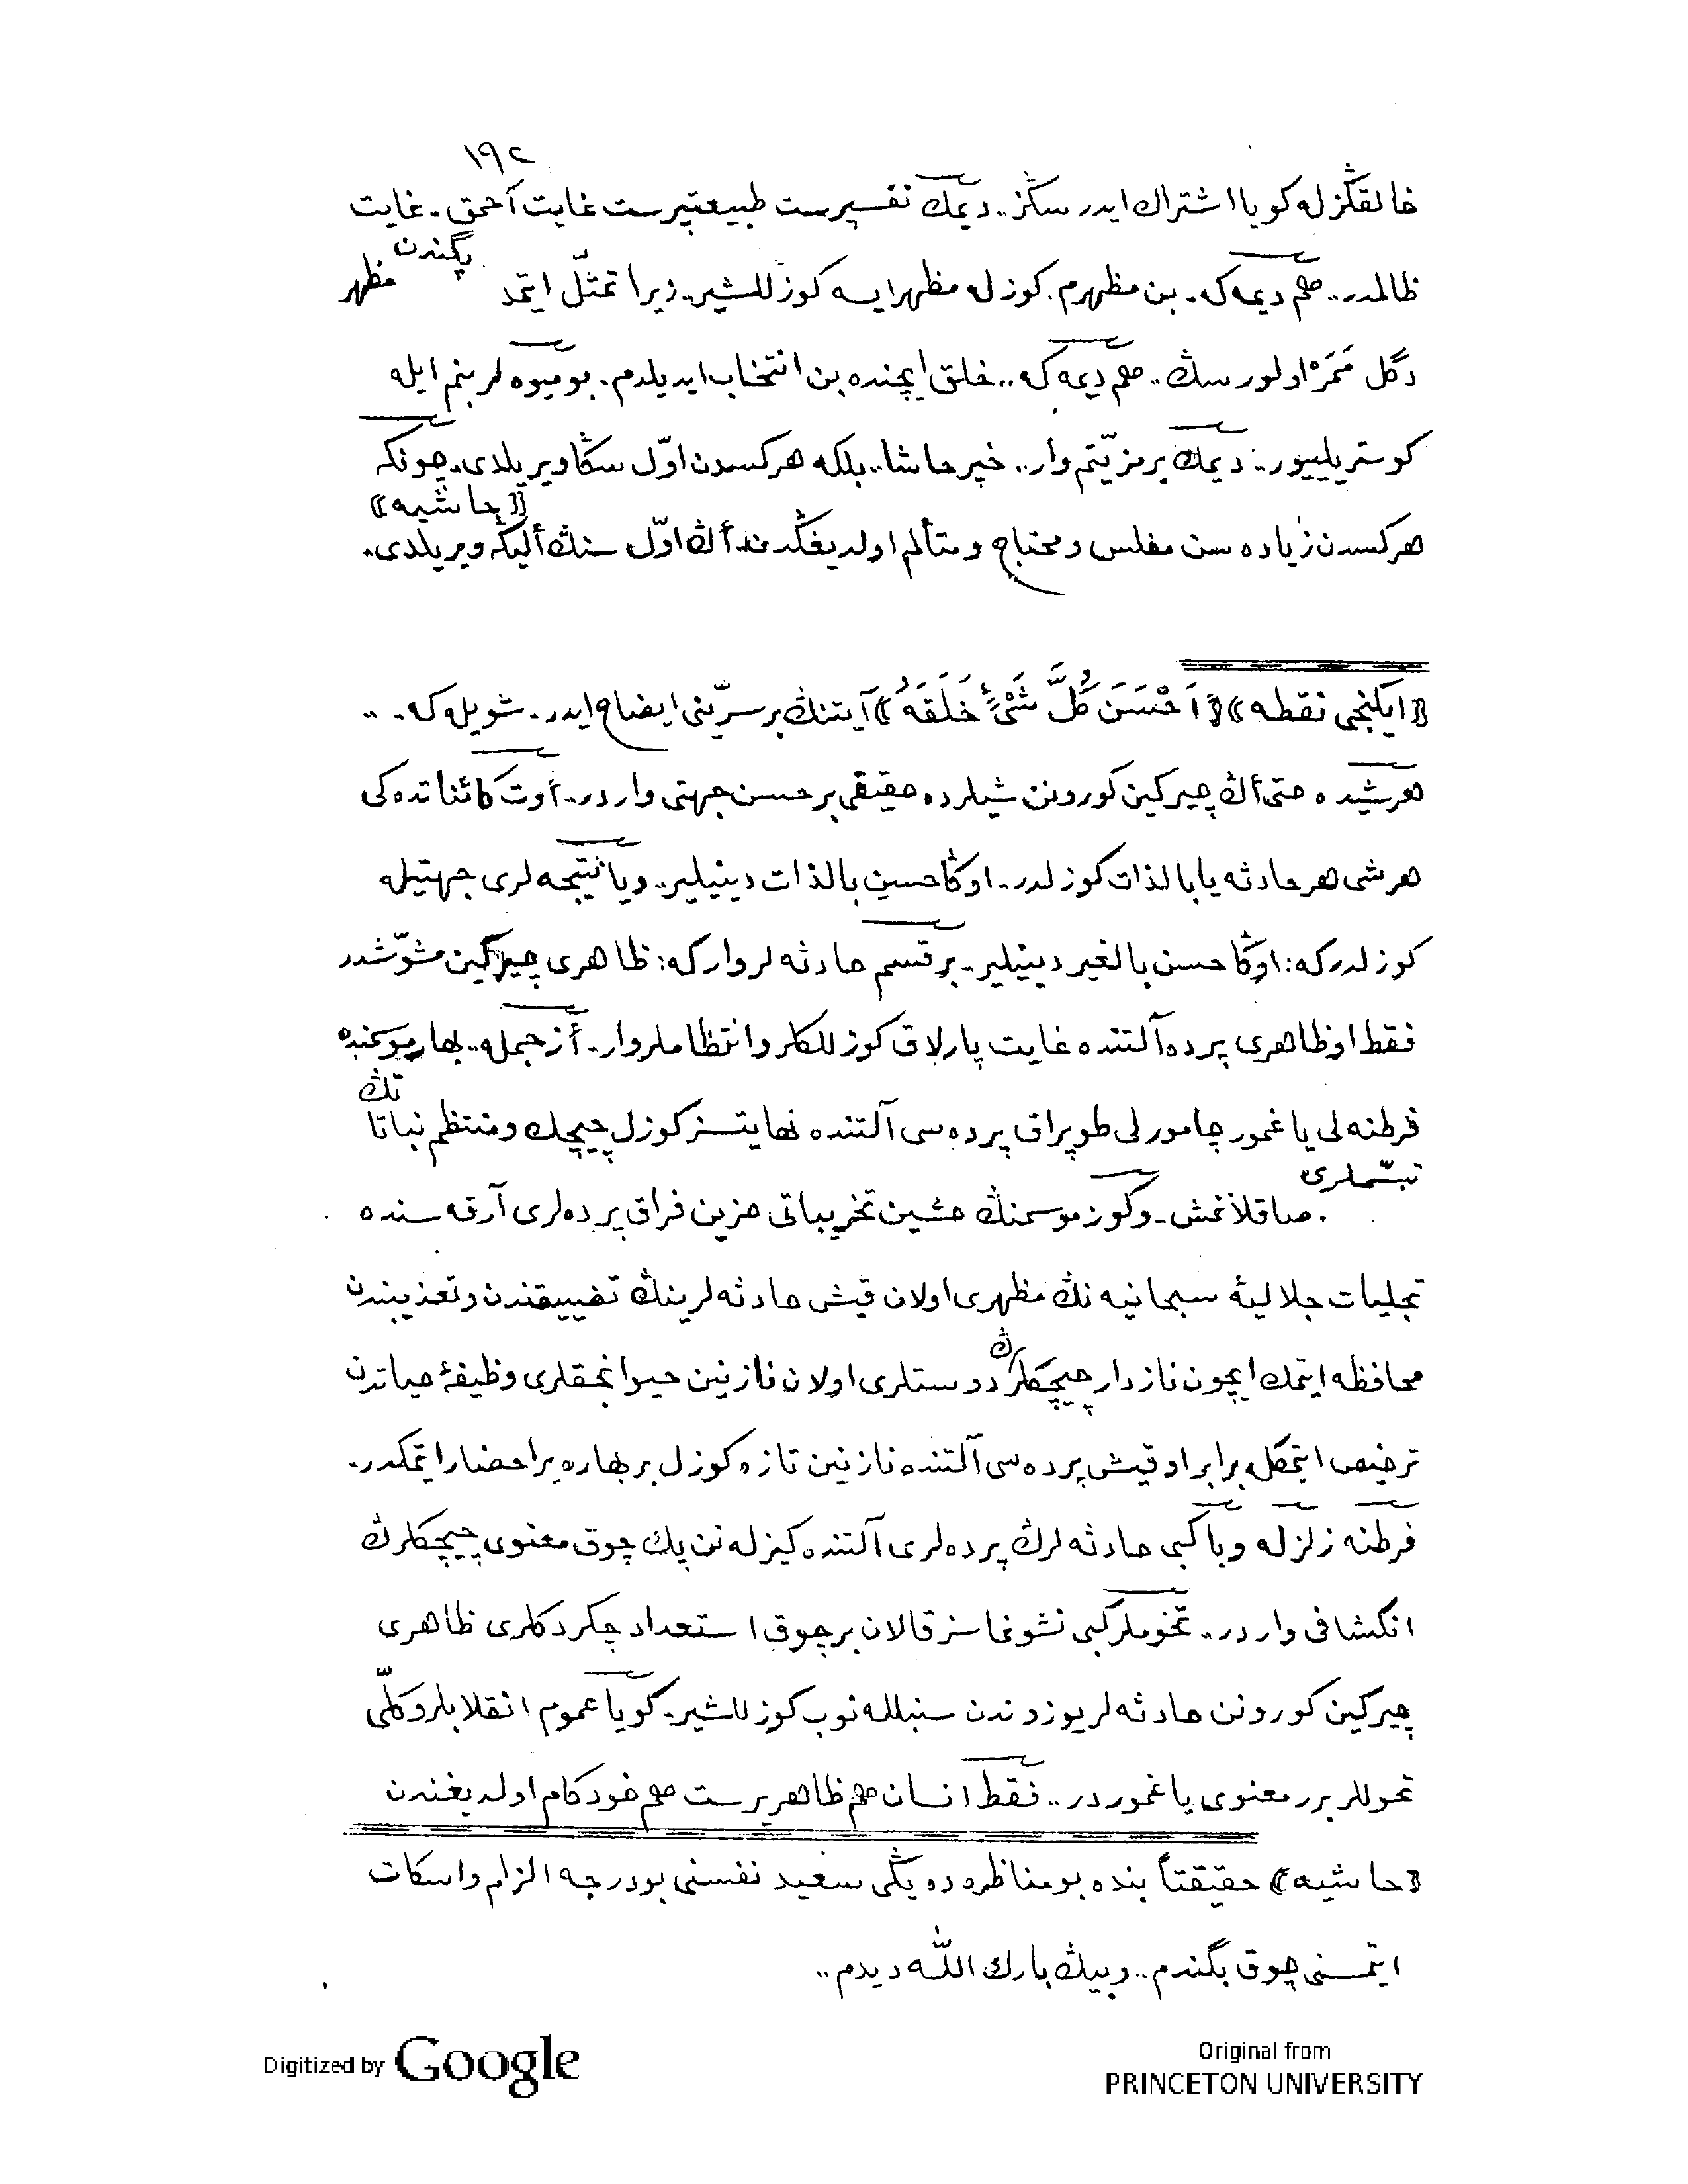 ١٩٢
خالقڭزله كويا اشتراك ايدرسڭز.. ديمك نفسپرست طبيعتپرست غايت آحمق. غايت
ظالمدر.. هم ديمه كه. بن مظهرم. كوزله مظهر ايسه كوزللشير.. زيرا تمثّل ايتمد
يگندن مظهر
دگل مَمَرْ اولورسڭ.. هم ديمه كه.. خلق ايچنده بن انتخاب ايديلدم. بو ميوه لر بنم ايله
كوستريلييور.. ديمك بر مزيّتم وار.. خير حاشا.. بلكه هركسدن اوّل سڭا ويريلدى. چونكه
هركسدن زياده سن مفلس و محتاج و متألم اولديغڭدن.. أڭ اوّل سنڭ أليڭه ويريلدى..
﴿حاشيه﴾
﴿ايكنجى نقطه﴾ ﴿اَحْسَنَ كُلَّ شَىْءٍ خَلَقَهُ﴾ آيتنڭ بر سرّينى ايضاح ايدر. شويله كه. ..
هر شيده حتى أڭ چيركين كورونن شيلرده حقيقى بر حسن جهتى واردر. أوت كائناتده كى
هر شى هر حادثه يا بالذات كوزلدر. اوڭا حسن بالذات دينيلير.. ويا نتيجه لرى جهتيله
كوزلدركه: اوڭا حسن بالغير دينيلير. بر قسم حادثه لر واركه: ظاهرى چيركين مشوّشدر
فقط او ظاهرى پرده آلتنده غايت پارلاق كوزللكلر و انتظاملر وار. أزجمله.. بهار موسمنده
فرطنه لى ياغمور چامورلى طوپراق پرده سى آلتنده نهايتسز كوزل چيچك و منتظم نباتا
تڭ
تبسّملرى
صاقلانمش. وكوز موسمنڭ خشين تخريباتى حزين فراق پرده لرى آرقه سنده
تجليات جلاليۀ سبحانيه نڭ مظهرى اولان قيش حادثه لرينڭ تضييقندن و تعذيبندن
محافظه ايتمك ايچون نازدار چيچكلرڭ دوستلرى اولان نازنين حيوانجقلرى وظيفۀ حياتدن
ترخيص ايتمكله برابر او قيش پرده سى آلتنده نازنين تازه كوزل بر بهاره ير احضار ايتمكدر.
فرطنه زلزله وبا كبى حادثه لرڭ پرده لرى آلتنده كيزله نن پك چوق معنوى چيچكلرڭ
انكشافى واردر.. تخوملر كبى نشونماسز قالان بر چوق استعداد چكردكلرى ظاهرى
چيركين كورونن حادثه لر يوزوندن سنبللەنوب كوزللشير. كويا عموم انقلابلر و كلّى
تحوللر برر معنوى ياغموردر.. فقط انسان هم ظاهرپرست هم خودكام اولديغندن
﴿حاشيه﴾ حقيقتاً بنده بو مناظره ده يڭى سعيد نفسنى بو درجه الزام و اسكات
ايتمسنى چوق بگندم.. و بيڭ بارك اللّٰه ديدم..
Digitized by Google
Original from
PRINCETON UNIVERSITY